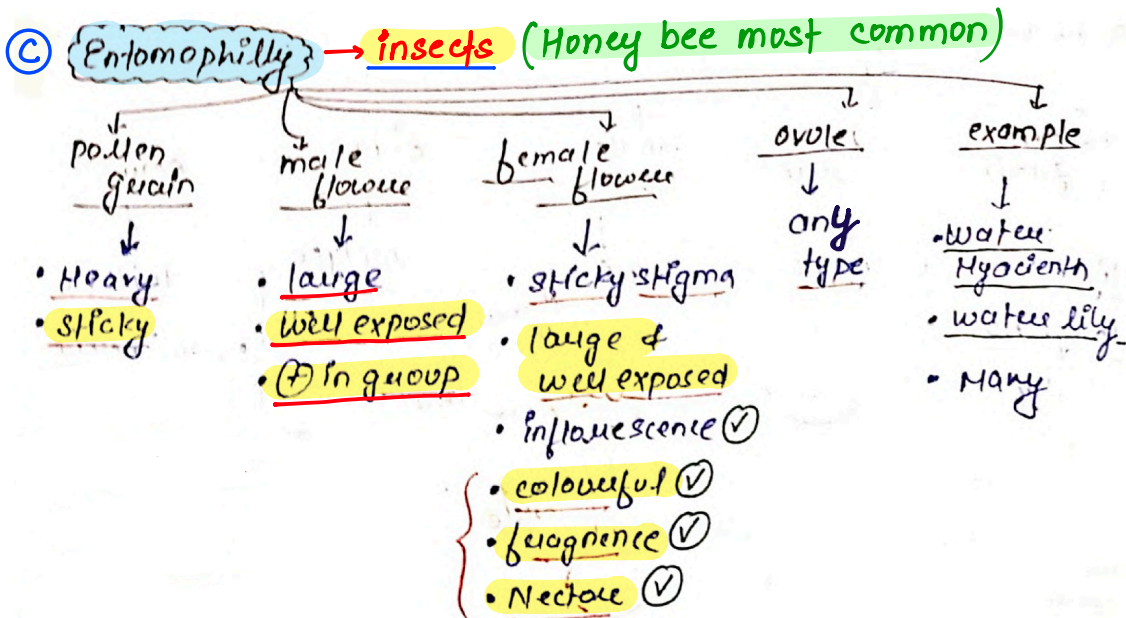 C Entomophilly → insects (Honey bee most common)
pollen grain
• Heavy
• sticky
male flower
• large
• well exposed
• (+) in group
female flower
• sticky stigma
• large &
well exposed
• inflorescence ✓
• colourful ✓
• fragnence ✓
• Nector ✓
ovule
any
type
example
• water
Hyacienth
• water lily
• Many